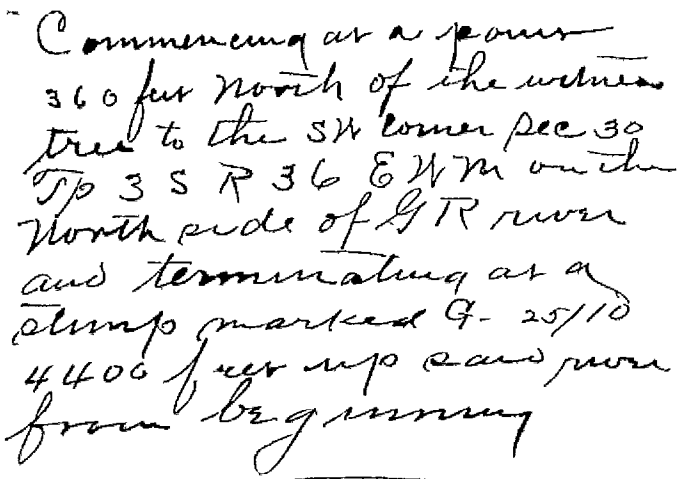 Commencing at a point
360 feet North of the witness
tree to the SW corner Sec 30
Tp 3 S R 36 E W M on the
North side of G R river
and terminating at a
stump marked G- 25/10
4400 feet up said river
from beginning